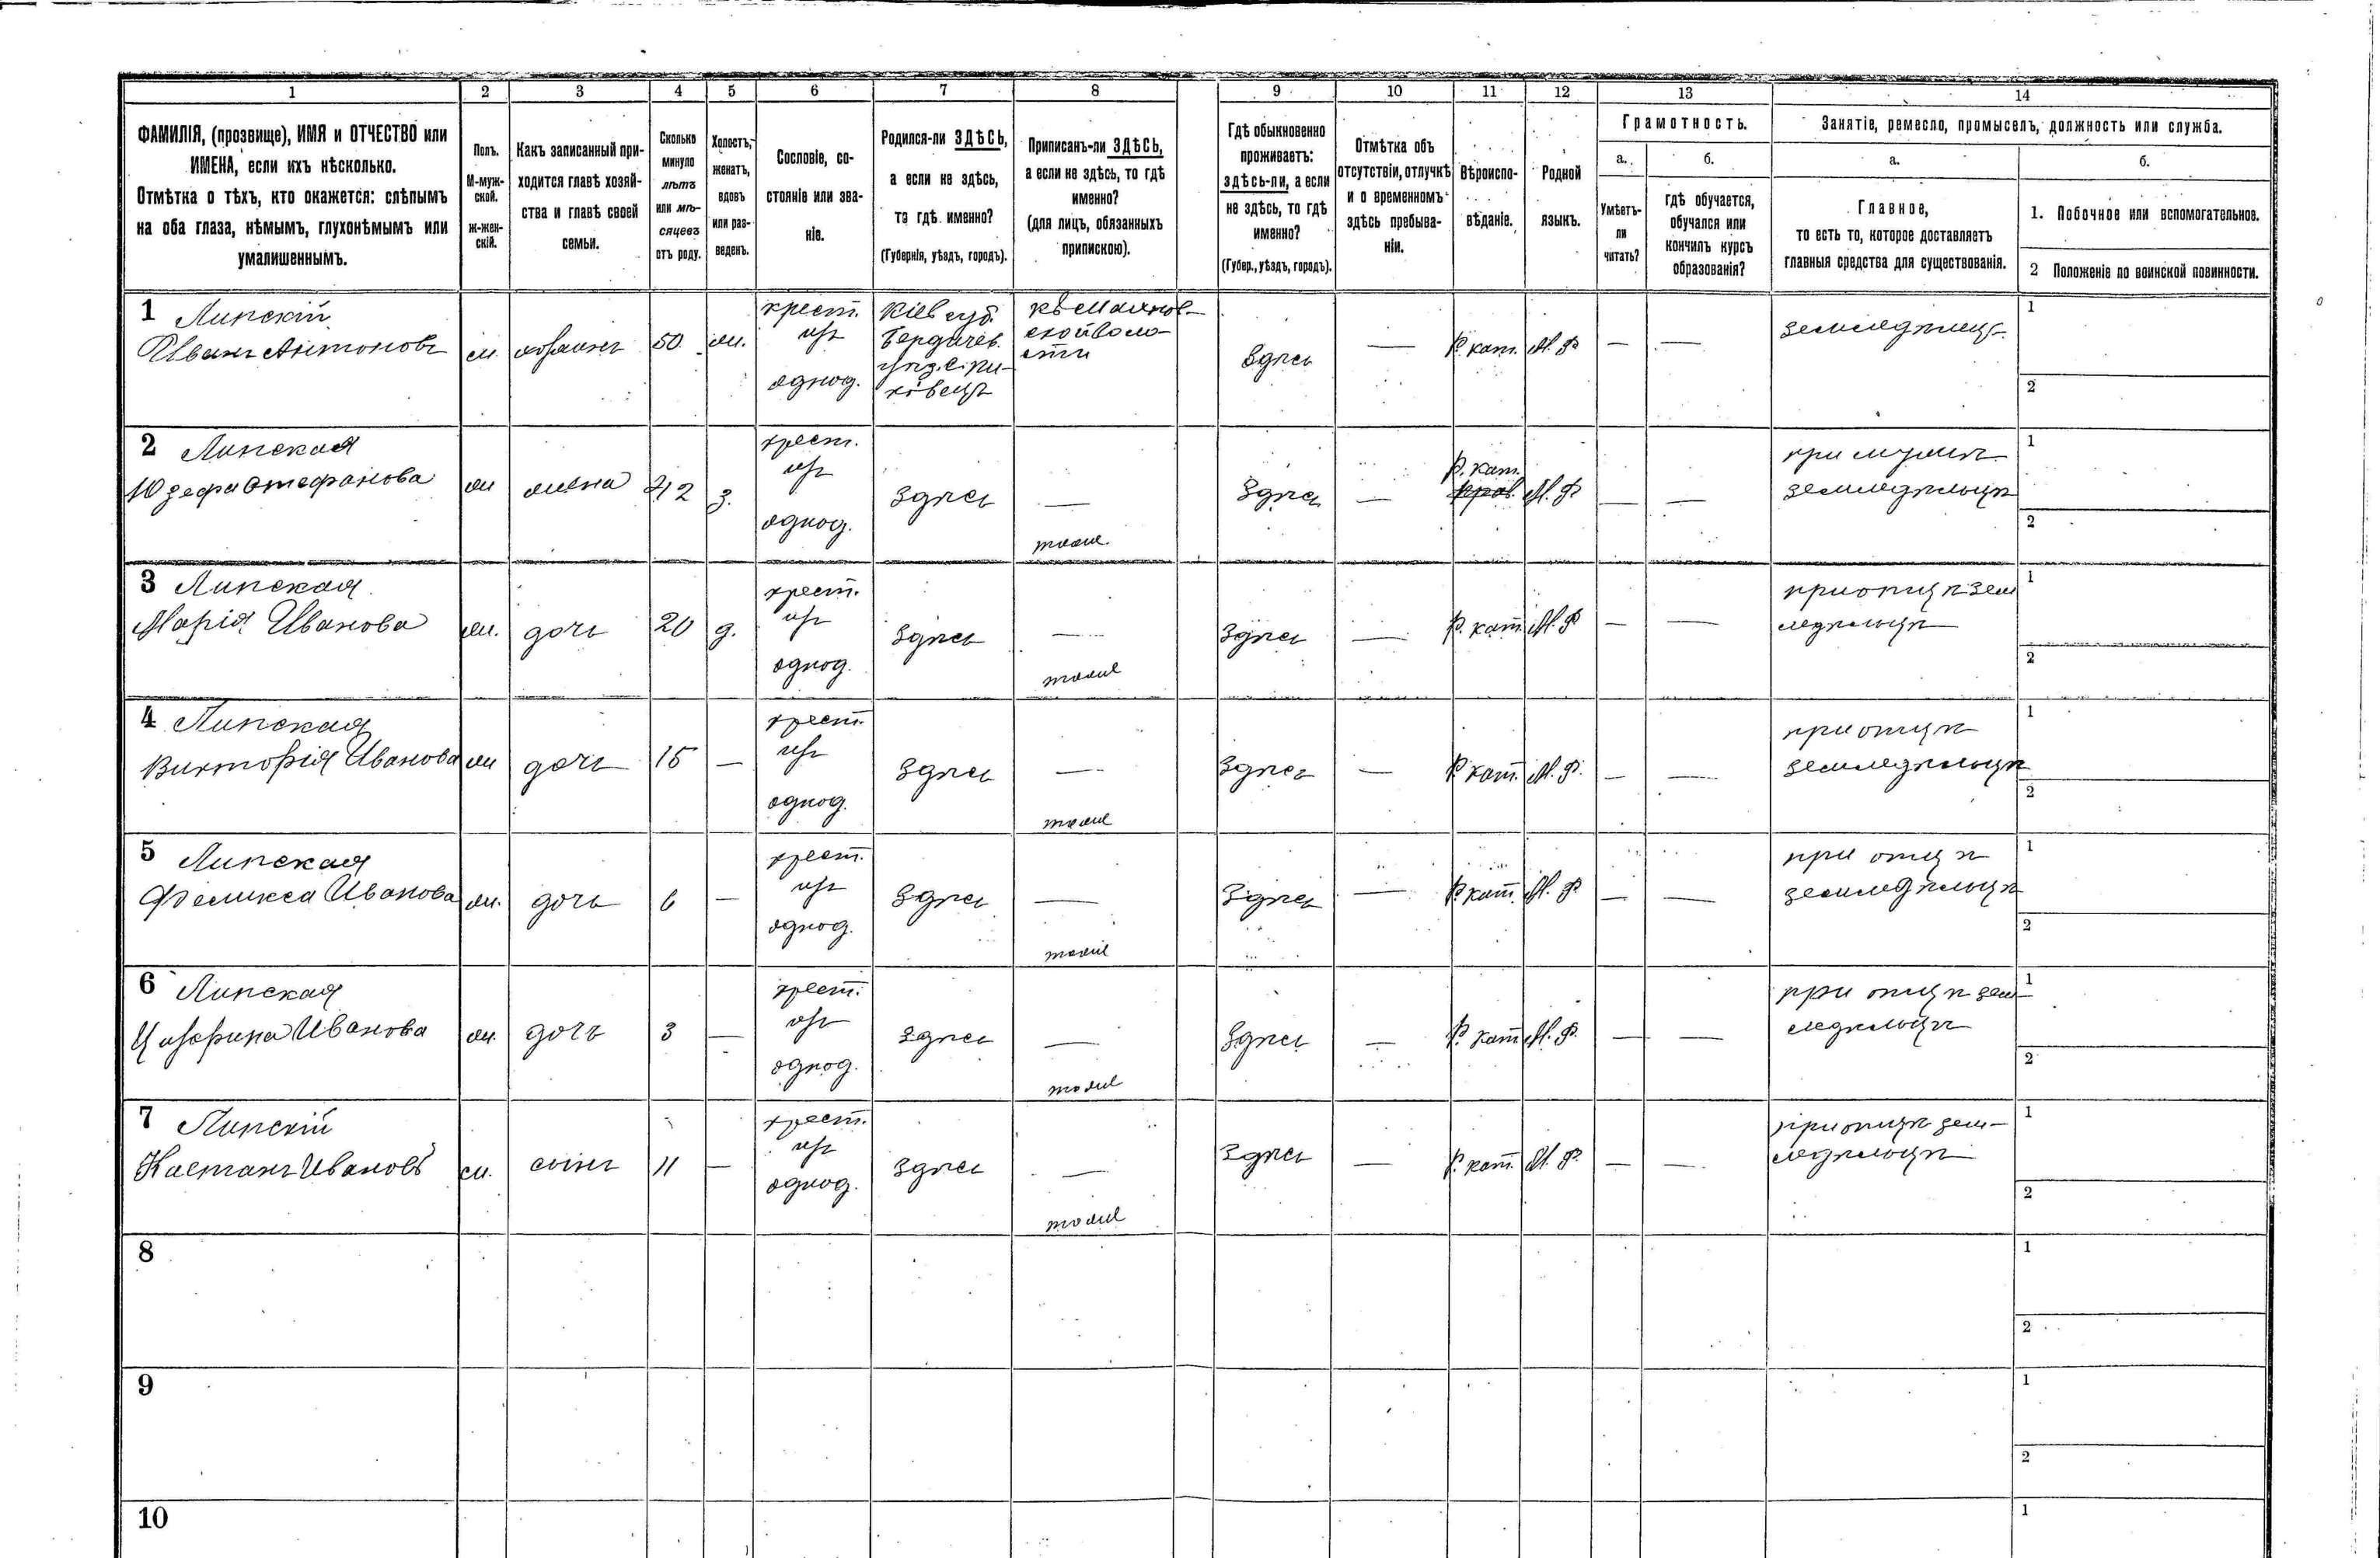 1 2 3 4 5 6 7 8 9 10 11 12 13 14
ФАМИЛІЯ, (прозвище), ИМЯ и ОТЧЕСТВО или
ИМЕНА, если ихъ нѣсколько.
Отмѣтка о тѣхъ, кто окажется: слѣпымъ
на оба глаза, нѣмымъ, глухонѣмымъ или
умалишеннымъ.
Полъ.
М-муж-
ской.
ж-жен-
скій.
Какъ записанный при-
ходится главѣ хозяй-
ства и главѣ своей
семьи.
Сколько
минуло
лѣтъ
или мѣ-
сяцевъ
отъ роду.
Холостъ,
женатъ,
вдовъ
или раз-
веденъ.
Сословіе, со-
стояніе или зва-
ніе.
Родился-ли ЗДѢСЬ,
а если не здѣсь,
то гдѣ именно?
(Губернія, уѣздъ, городъ).
Приписанъ-ли ЗДѢСЬ,
а если не здѣсь, то гдѣ
именно?
(для лицъ, обязанныхъ
припискою).
Гдѣ обыкновенно
проживаетъ:
здѣсь-ли, а если
не здѣсь, то гдѣ
именно?
(Губер., уѣздъ, городъ).
Отмѣтка объ
отсутствіи, отлучкѣ
и о временномъ
здѣсь пребыва-
ніи.
Вѣроиспо-
вѣданіе.
Родной
языкъ.
Грамотность.
а.
Умѣетъ-
ли
читать?
б.
гдѣ обучается,
обучался или
кончилъ курсъ
образованія?
Занятіе, ремесло, промыселъ, должность или служба.
а.
Главное,
то есть то, которое доставляетъ
главныя средства для существованія.
б.
1. Побочное или вспомогательное.
2 Положеніе по воинской повинности.
1 Липскій
Иванъ Антоновъ
м. хозяинъ 50 ж.
крест.
изъ
однод.
Кіев губ.
Бердичев.
уѣзд. с. Пи-
ковецъ
къ Махнов-
ской воло-
сти
Здѣсь — Р. кат. М. Р — —
земледѣлецъ
1
2
2 Липская
Юзефа Стефанова
ж жена 42 з.
крест.
изъ
однод.
Здѣсь —
тоже
Здѣсь —
Р. кат.
прав. М. Р — —
при мужѣ
земледѣльцѣ
1
2
3 Липская
Марія Иванова
ж. дочь 20 д.
крест.
изъ
однод.
Здѣсь —
тоже
Здѣсь — Р. кат. М. Р — —
при отцѣ зем
ледѣльцѣ
1
2
4 Липская
Викторія Иванова
ж дочь 15 —
крест.
изъ
однод.
Здѣсь —
тоже
Здѣсь — Р кат. М. Р. — —
при отцѣ
земледѣльцѣ
1
2
5 Липская
Феликса Иванова
ж. дочь 6 —
крест.
изъ
однод.
Здѣсь —
тоже
Здѣсь — Р. кат. М. Р — —
при отцѣ
земледѣльцѣ
1
2
6 Липская
Цезерина Иванова
ж. дочь 3 —
крест.
изъ
однод.
Здѣсь —
тоже
Здѣсь — Р. кат М. Р. — —
при отцѣ зем-
ледѣльцѣ
1
2
7 Липскій
Кастанъ Ивановъ
м. сынъ 11 —
крест.
изъ
однод.
Здѣсь —
тоже
Здѣсь — Р. кат. М. Р. — —
при отцѣ зем-
ледѣльцѣ
1
2
8
1
2
9
1
2
10
1